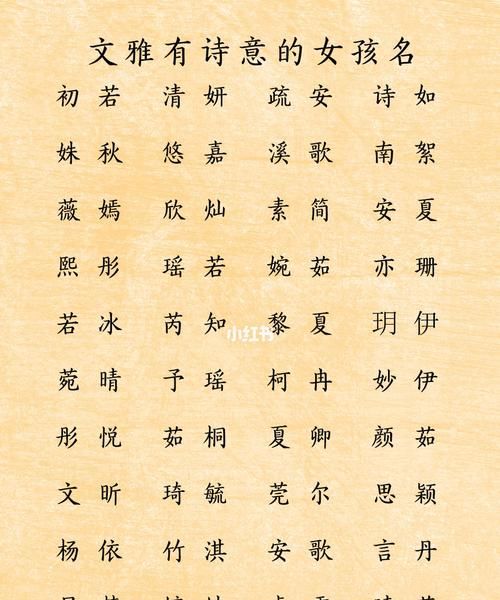 文雅有诗意的女孩名
初若 清妍 疏安 诗如
姝秋 悠嘉 溪歌 南絮
薇嫣 欣灿 素简 安夏
熙彤 瑶若 婉茹 亦珊
若冰 芮知 黎夏 玥伊
小红书
菀晴 予瑶 柯冉 妙伊
彤悦 茹桐 夏卿 颜茹
文昕 琦毓 莞尔 思颖
杨依 竹淇 安歌 言丹